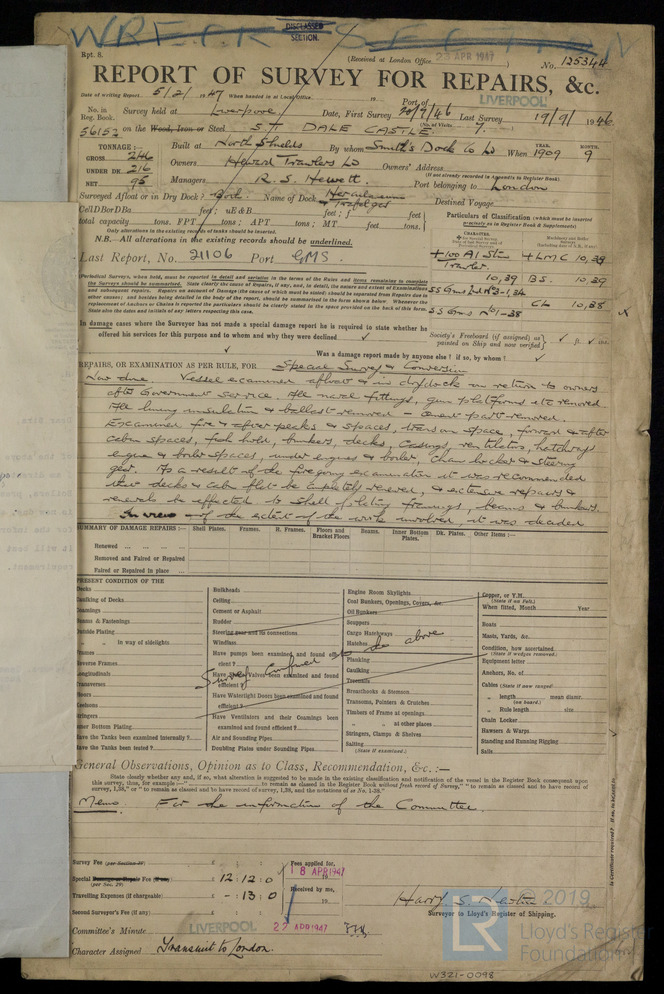 WRECK SECTION
DISCLASSED
SECTION.
Rpt. 8.
(Received at London Office 23 APR 1947
No. 125344
REPORT OF SURVEY FOR REPAIRS, &c.
Date of writing Report 5/2/1947 When handed in at Local Office 19 Port of LIVERPOOL
No. in Reg. Book. Survey held at Liverpool Date, First Survey 20/7/46 Last Survey 19/9/1946
(No. of Visits 7.
56152 on the Wood, Iron or Steel S.T. DALE CASTLE
TONNAGE:— Built at North Shields By whom Smith's Dock Co Ld When 1909 YEAR. MONTH. 9
GROSS 246
UNDER DK. 216 Owners Hewett Trawlers Ld Owners' Address
(If not already recorded in Appendix to Register Book)
NET 95 Managers R. S. Hewett. Port belonging to London
Surveyed Afloat or in Dry Dock? Both. Name of Dock Herculaneum & Trafalgar Destined Voyage
Cell DBor DBa feet; uE&B feet; f feet
total capacity tons. FPT tons; APT tons; MT feet tons.
Only alterations in the existing records of tanks should be inserted.
N.B. All alterations in the existing records should be underlined.
Last Report, No. 21106 Port GMS.
Particulars of Classification (which must be inserted precisely as in Register Book & Supplements)
CHARACTER.
+100 A1 Stm Trawler. + LMC 10,38
10,39 BS. 10,39
SS Gms No3-1,34
CL 10,38
SS Gms No1-38
(Periodical Surveys, when held, must be reported in detail and seriatim in the terms of the Rules and items remaining to complete the Surveys should be summarised.
In damage cases where the Surveyor has not made a special damage report he is required to state whether he offered his services for this purpose and to whom and why they were declined ✓
Society's Freeboard (if assigned) as painted on Ship and now verified ✓ ft. ✓ ins.
Was a damage report made by anyone else? if so, by whom? ✓
REPAIRS, OR EXAMINATION AS PER RULE, FOR Special Survey & Conversion
Now done. Vessel examined afloat & in drydock on return to owners
after Government service. All naval fittings, gun platforms etc removed
All lining insulation & ballast removed - cement part removed.
Examined fore & after peaks & spaces, space, forward & after
cabin spaces, fish hold, bunkers, decks, casings, ventilators, hatchways
engine & boiler spaces, under engines & boiler, chain locker & steering
gear. As a result of the foregoing examination it was recommended
that decks & cabin flat be completely renewed, & extensive repairs &
renewals be effected to shell plating framings, beams & bunkers.
In view of the extent of the work involved, it was decided
SUMMARY OF DAMAGE REPAIRS:— Shell Plates. Frames. R. Frames. Floors and Bracket Floors Beams. Inner Bottom Plates. Dk. Plates. Other Items:—
Renewed
Removed and Faired or Repaired
Faired or Repaired in place
PRESENT CONDITION OF THE
Decks
Caulking of Decks
Coamings
Beams & Fastenings
Outside Plating
" " in way of sidelights
Frames
Reverse Frames
Longitudinals
Transverses
Floors
Keelsons
Stringers
Inner Bottom Plating
Have the Tanks been examined internally?
Have the Tanks been tested?
Bulkheads
Ceiling
Cement or Asphalt
Rudder
Steering gear and its connections
Windlass
Have pumps been examined and found efficient?
Have Sluice Valves been examined and found efficient?
Have Watertight Doors been examined and found efficient?
Have Ventilators and their Coamings been examined and found efficient?
Air and Sounding Pipes
Doubling Plates under Sounding Pipes
Engine Room Skylights
Coal Bunkers, Openings, Covers, &c.
Oil Bunkers
Scuppers
Cargo Hatchways
Hatches
Planking
Caulking
Treenails
Breasthooks & Stemson
Transoms, Pointers & Crutches
Timbers of Frame at openings
" " at other places
Stringers, Clamps & Shelves
Salting (State if examined.)
Copper, or Y.M. (State if on Felt.)
When fitted, Month Year
Boats
Masts, Yards, &c.
Condition, how ascertained (State if wedges removed.)
Equipment letter
Anchors, No. of
Cables (State if now ranged)
" length mean diamr. (on board.)
" Rule length size
Chain Locker
Hawsers & Warps
Standing and Running Rigging
Sails
Survey confined to the above
General Observations, Opinion as to Class, Recommendation, &c.:—
State clearly whether any and, if so, what alteration is suggested to be made in the existing classification and notification of the vessel in the Register Book consequent upon
Memo For the information of the Committee.
Survey Fee (per Section 29) £ : :
Special Damage or Repair Fee (if any) (per Sec. 29) £ 12:12:0
Travelling Expenses (if chargeable) £ -:13:0
Second Surveyor's Fee (if any) £ : :
Fees applied for, 18 APR 1947
Received by me, 19
Harry S.
Surveyor to Lloyd's Register of Shipping.
Committee's Minute LIVERPOOL 22 APR 1947
Character Assigned Transmit to London.
© 2019
LR
Lloyd's Register
Foundation
W321-0098